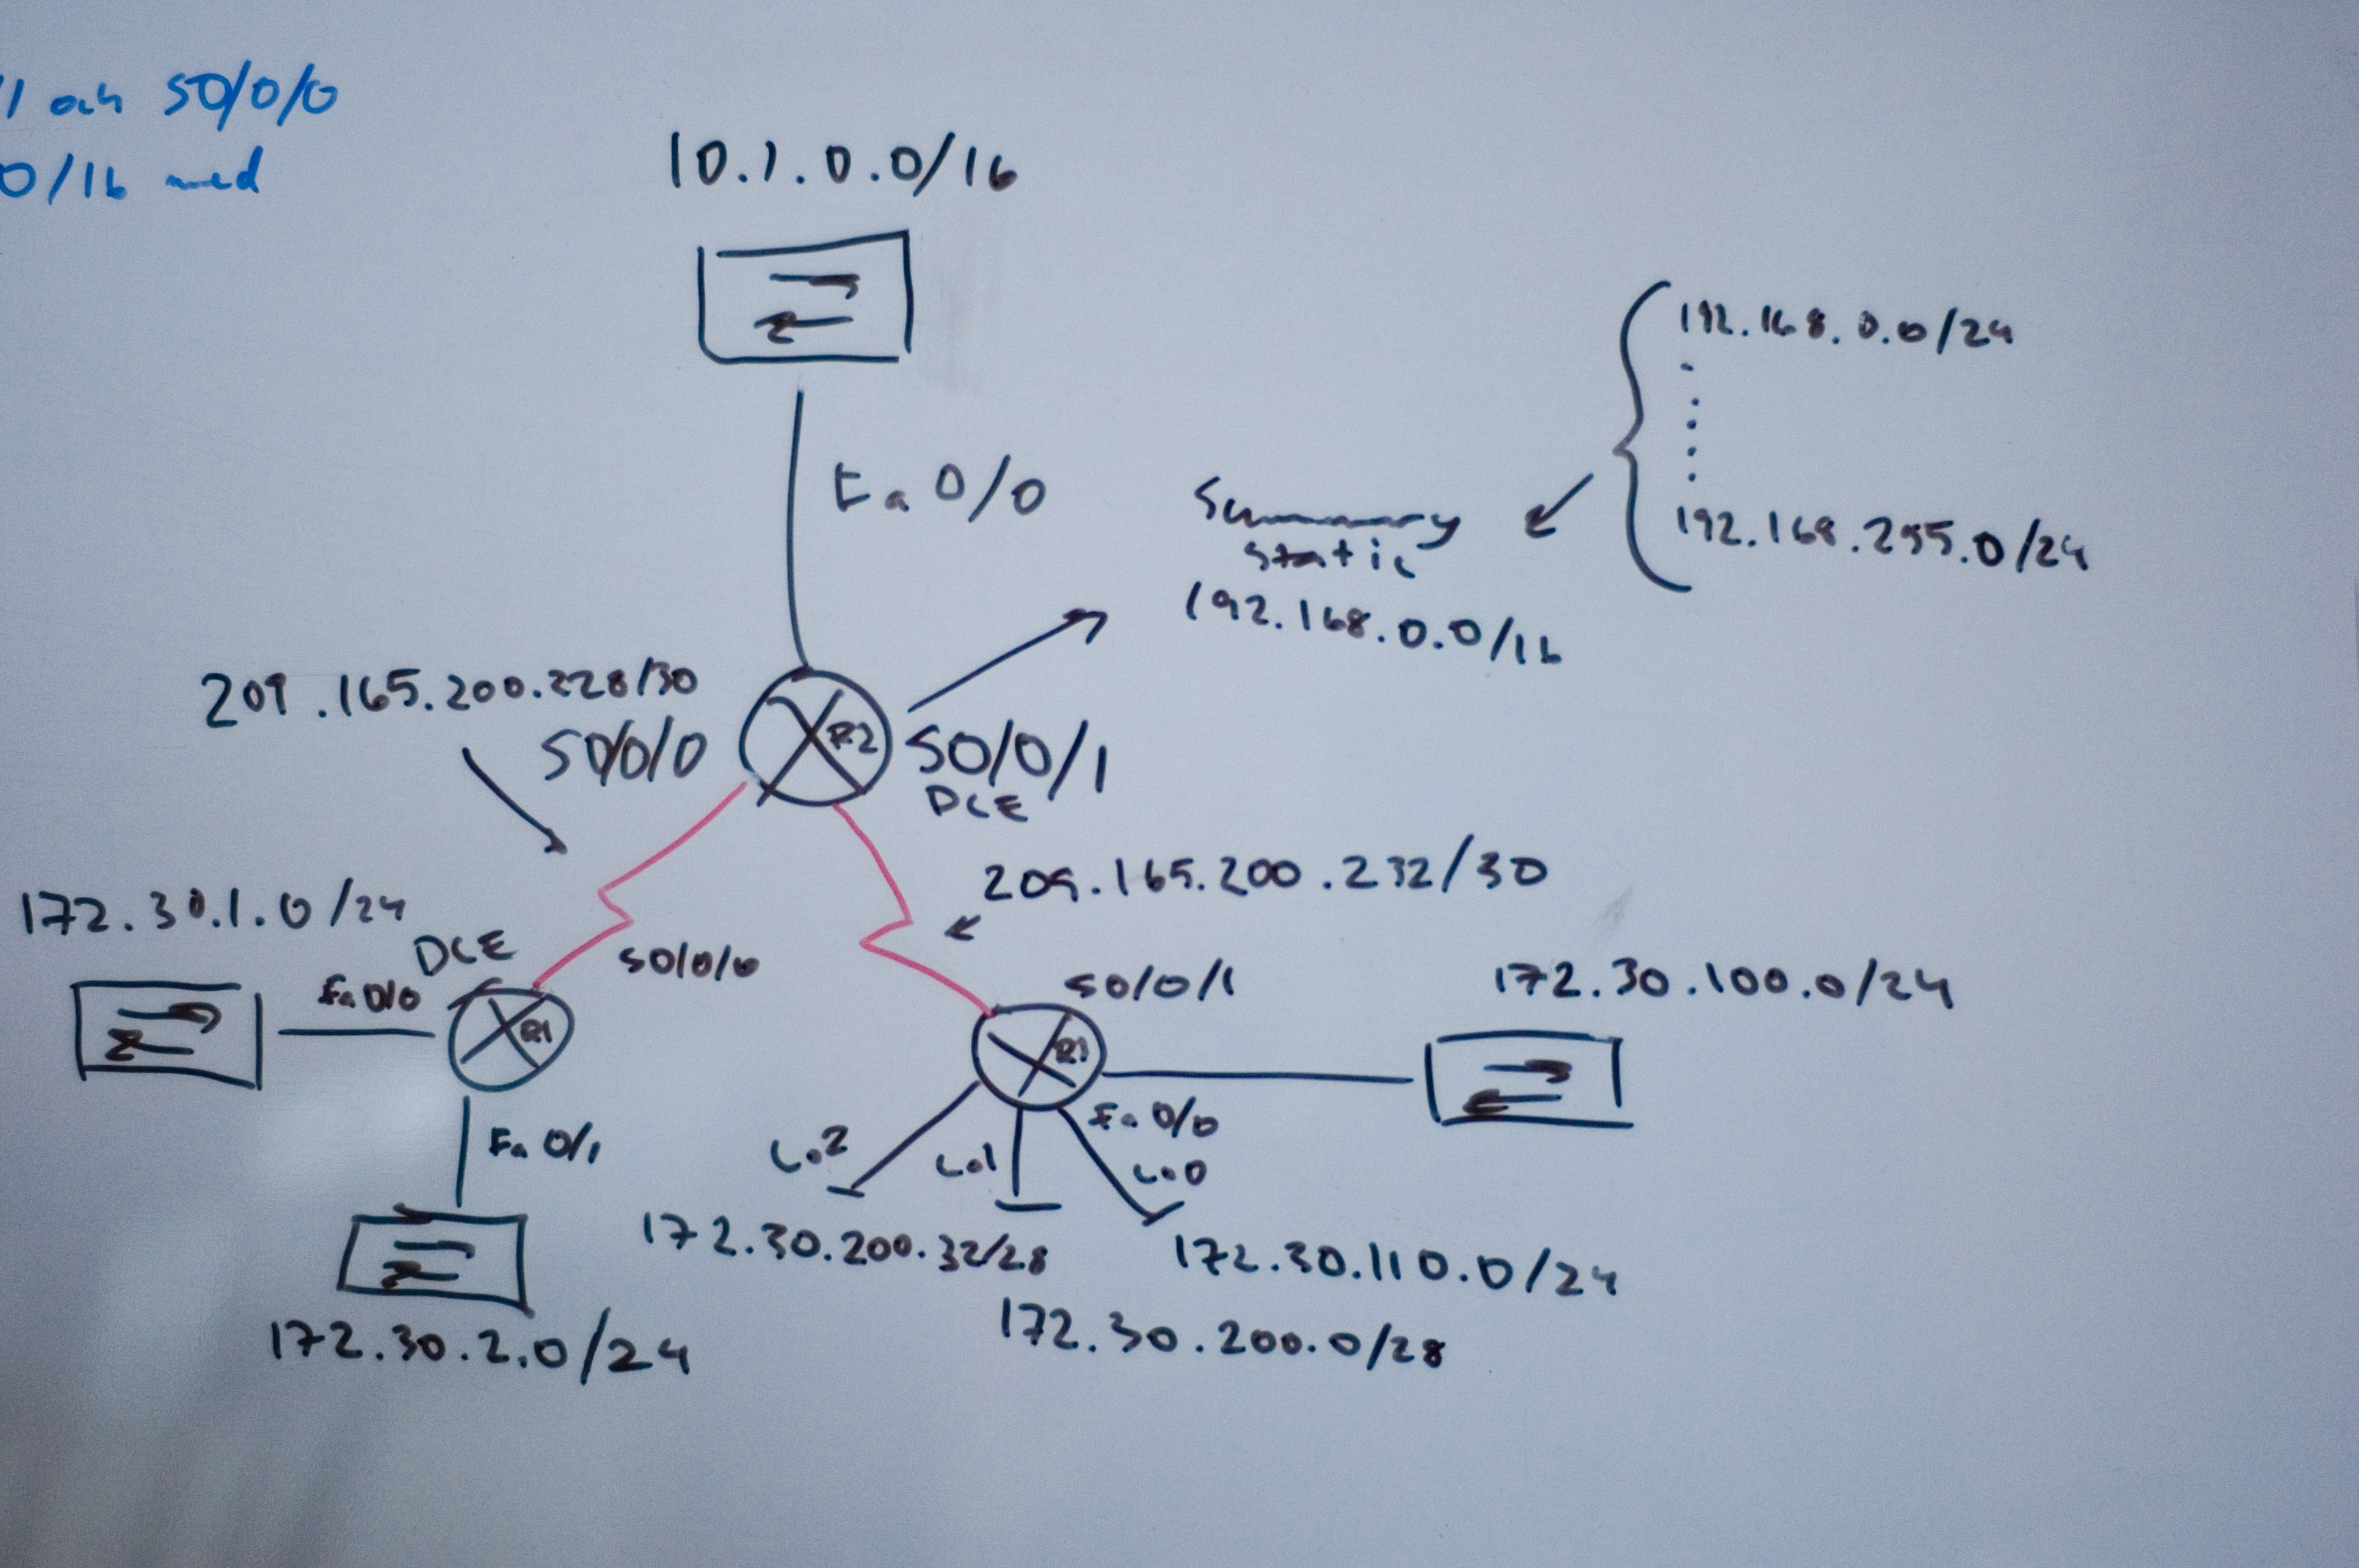 och S0/0/0
0/16 med
10.1.0.0/16
Fa 0/0
192.168.0.0/24
192.168.255.0/24
Summary
static
192.168.0.0/16
209.165.200.228/30
S0/0/0
R2
S0/0/1
DCE
209.165.200.232/30
172.30.1.0/24
DCE
S0/0/0
Fa 0/0
R1
S0/0/1
172.30.100.0/24
R3
Fa 0/1
Fa 0/0
Lo2
Lo1
Lo0
172.30.200.32/28
172.30.110.0/24
172.30.200.0/28
172.30.2.0/24